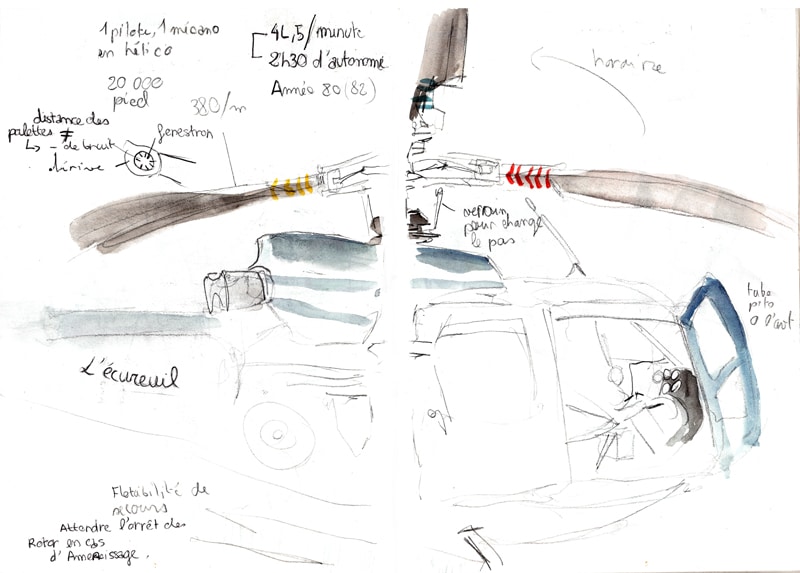 1 pilote, 1 mécano
en hélico
4L,5/minute
2h30 d'autonomie
Année 80 (82)
20 000
pied
380/m
distance des
palettes ≠
↳ - de bruit
dérive
fenestron
horaire
verrouil
pour change
le pas
tube
pito
à l'avt
L'écureuil
Flotabilité de
secours
Attendre l'arrêt des
Rotor en cas
d'Amerissage.